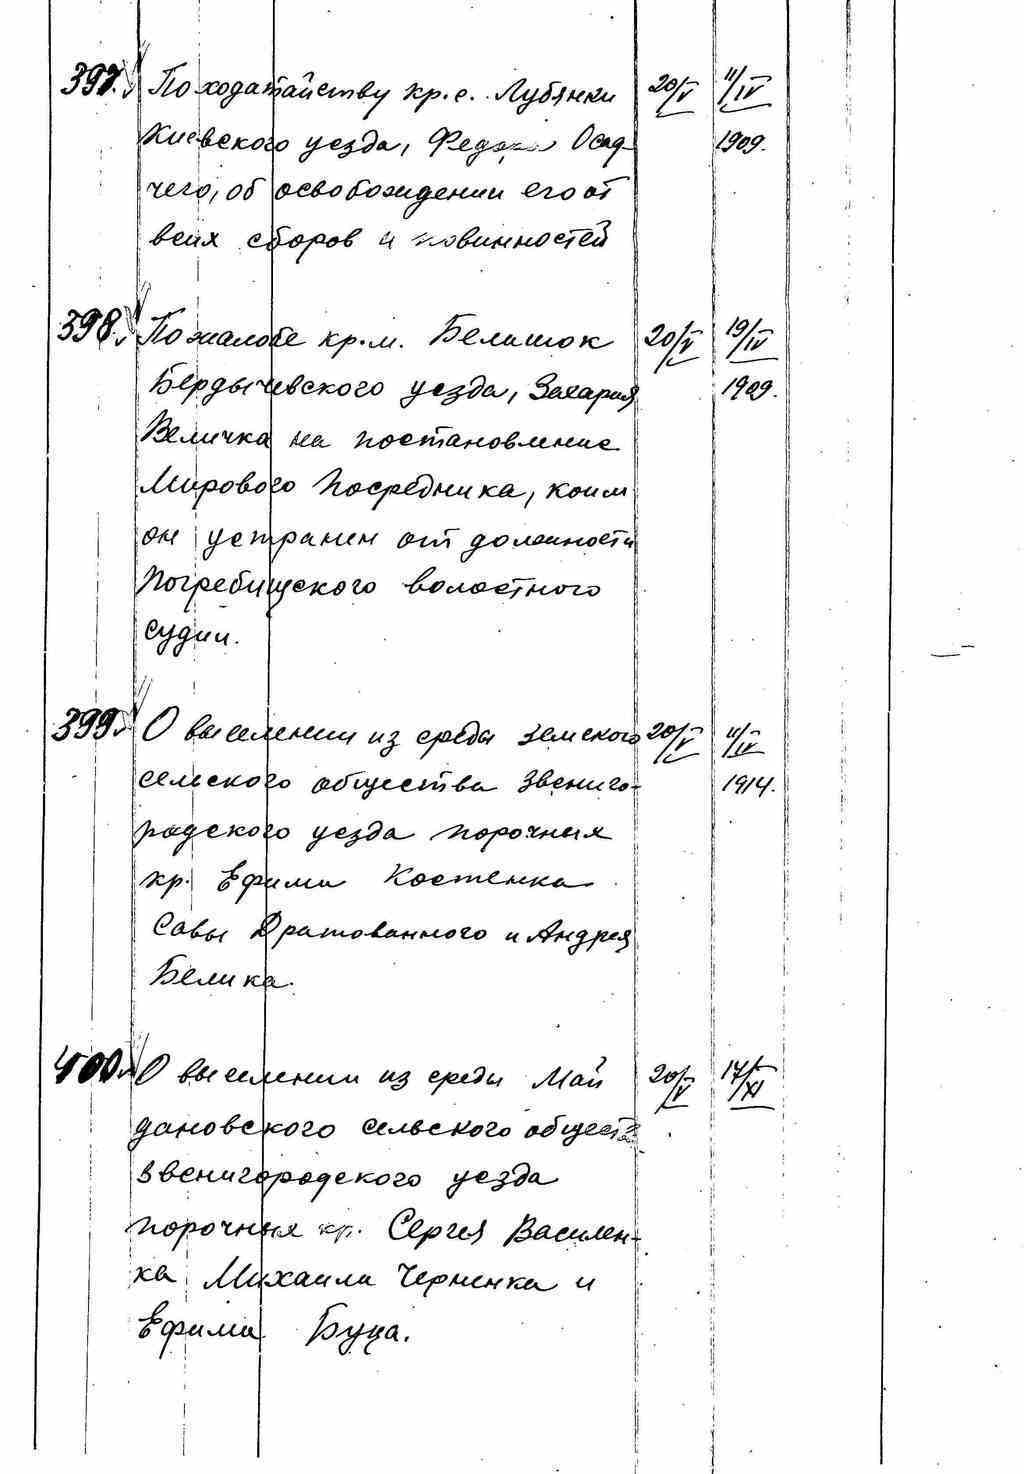 397. По ходатайству кр. с. Лубянки 20/V 11/IV
Киевского уезда, Федора Осад- 1909.
чего, об освобождении его от
всех сборов и повинностей
398. По жалобе кр. м. Белиловок 20/V 19/IV
Бердычевского уезда, Захария 1909.
Величка на постановление
Мирового Посредника, коим
он устранен от должности
Погребищского волостного
судии.
399. О выселении из среды Земского 20/V 11/IV
сельского общества Звениго- 1914.
родского уезда порочных
кр. Ефима Костенка
Савы Дратованного и Андрея
Белика.
400. О выселении из среды Май 20/V 17/XI
дановского сельского общества
Звенигородского уезда
порочных кр. Сергея Василен-
ка Михаила Черненка и
Ефима Буца.